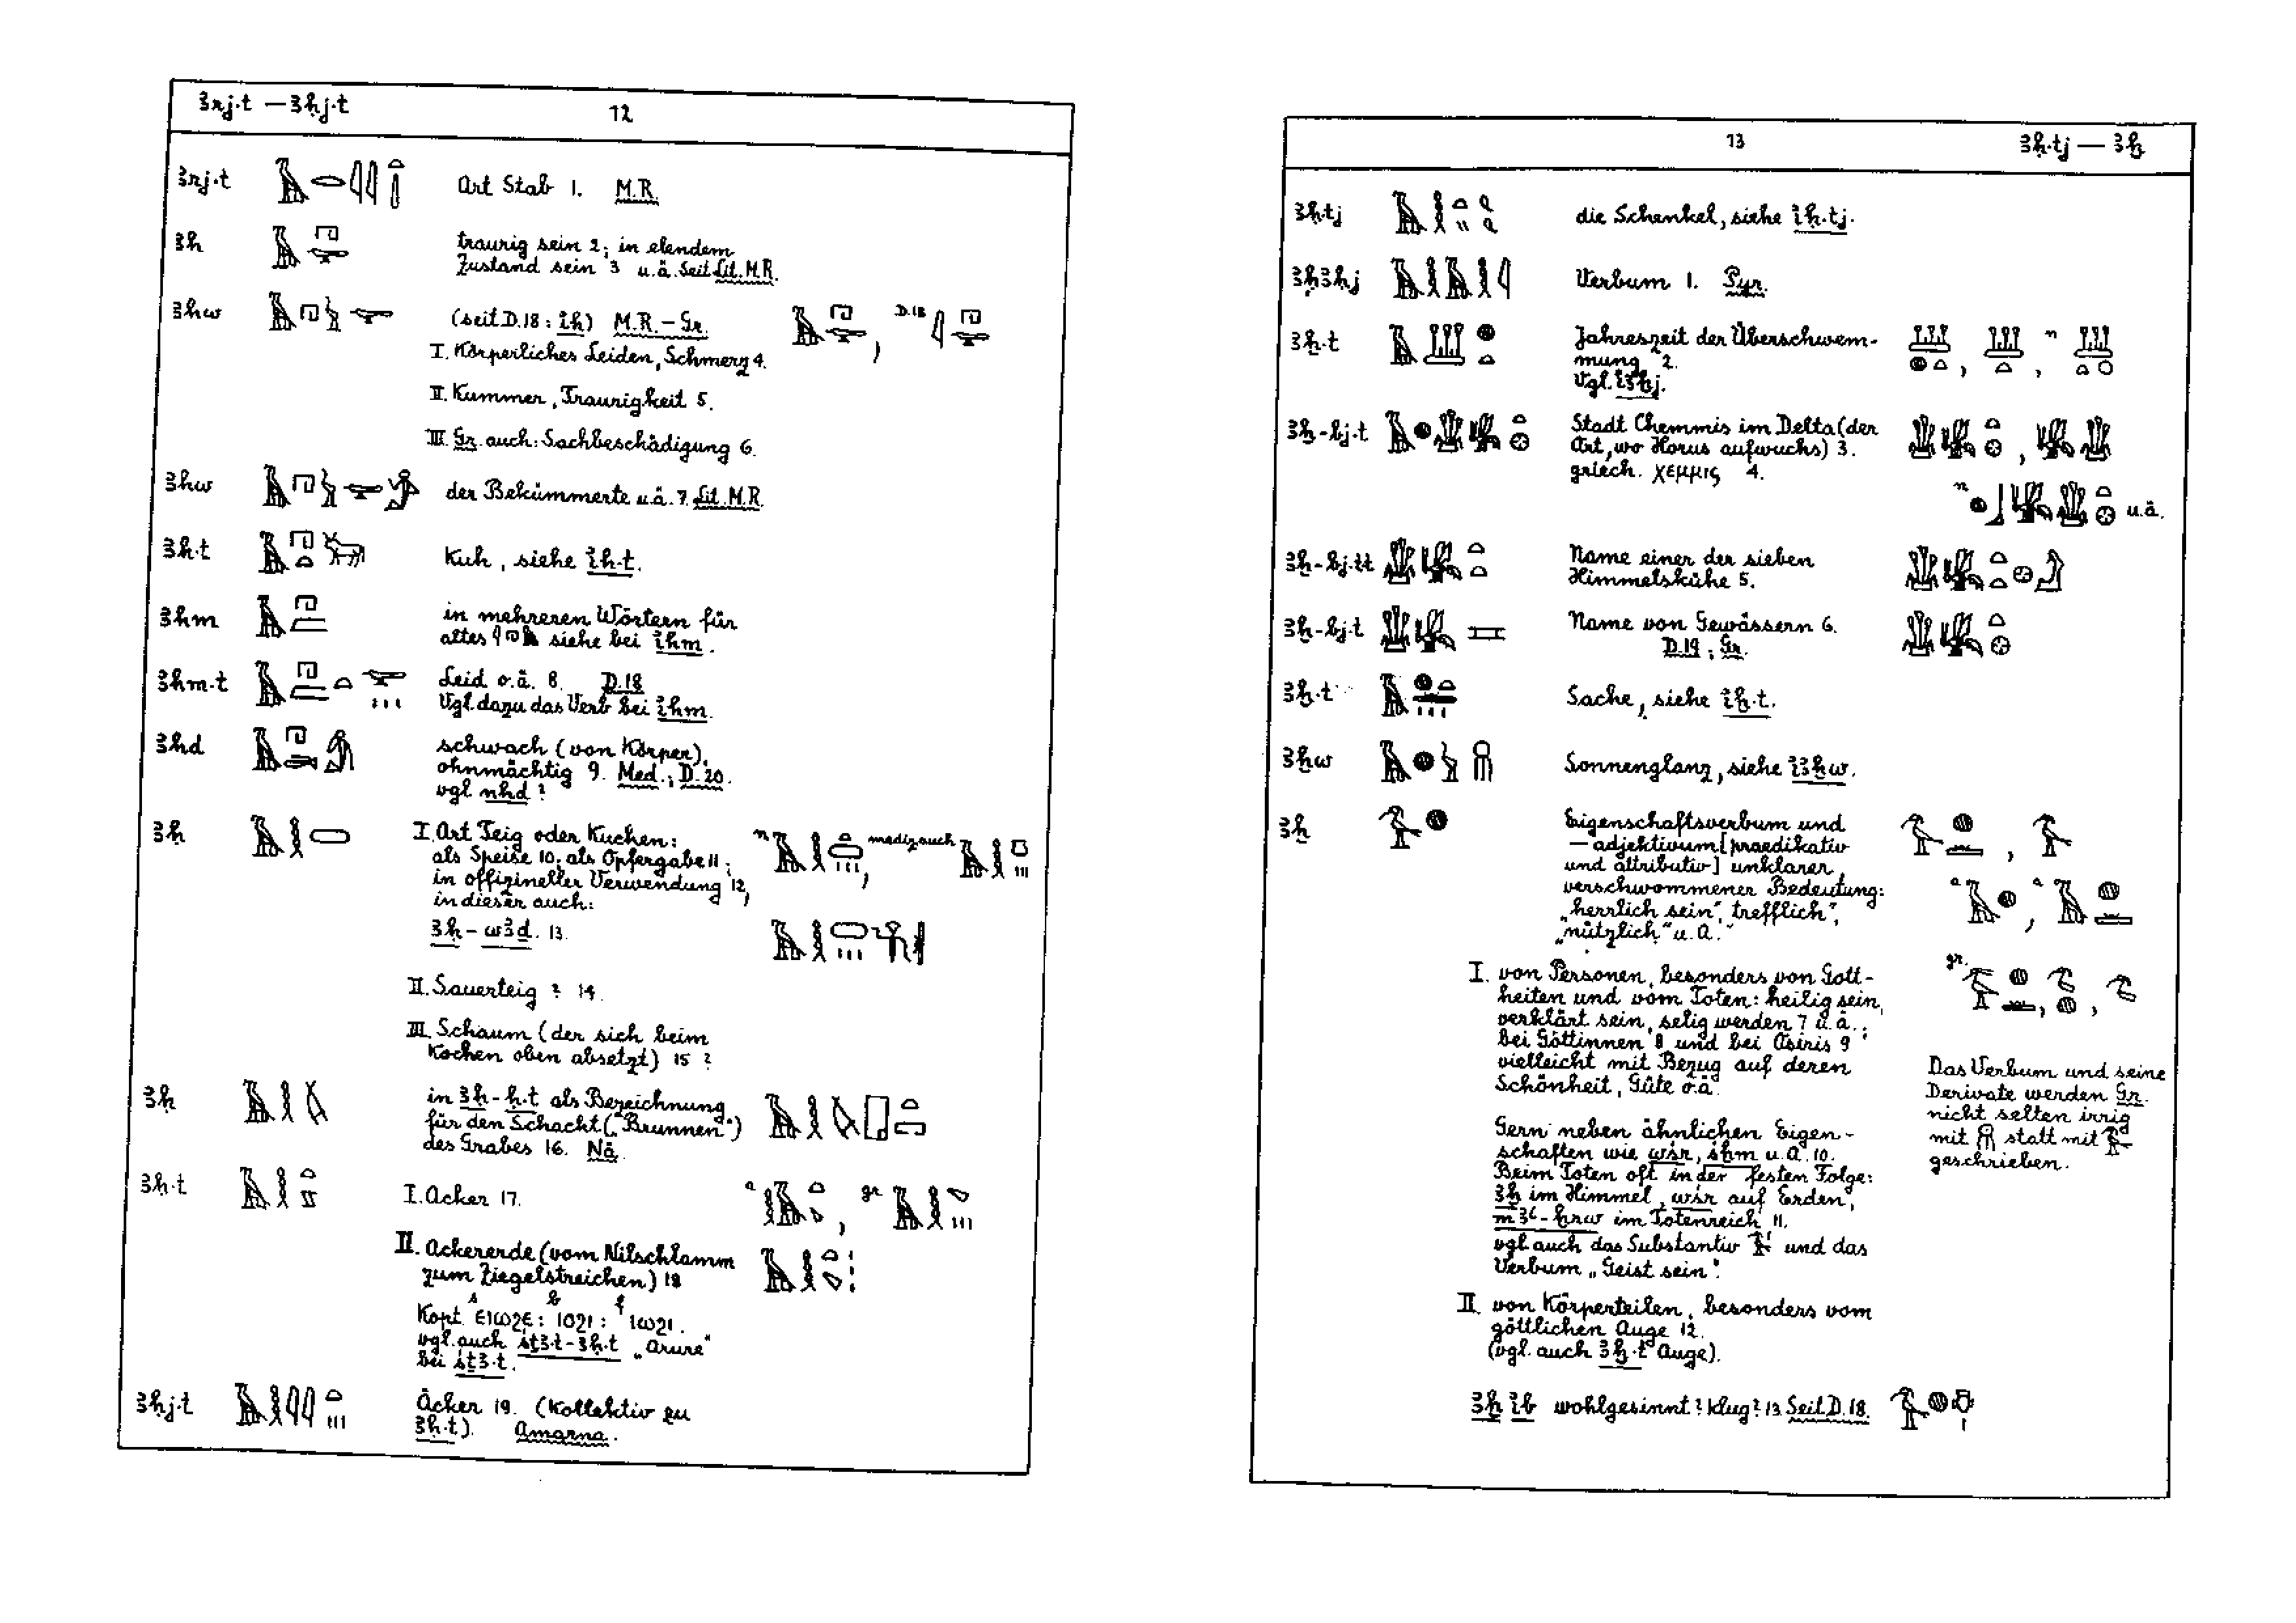 ꜣrj·t — ꜣḥj·t
12
ꜣrj·t Art Stab 1. M.R.
ꜣh traurig sein 2; in elendem
Zustand sein 3 u.ä. Seit Lit. M.R.
ꜣhw (seit D.18: ı͗h) M.R. – Gr. D.18
I. Körperliches Leiden, Schmerz 4.
II. Kummer, Traurigkeit 5.
III. Gr. auch: Sachbeschädigung 6.
ꜣhw der Bekümmerte u.ä. 7. Lit. M.R.
ꜣh·t Kuh, siehe ı͗h·t.
ꜣhm in mehreren Wörtern für
altes siehe bei ı͗hm.
ꜣhm·t Leid o.ä. 8. D.18
Vgl. dazu das Verb bei ı͗hm.
ꜣhd schwach (von Körper),
ohnmächtig 9. Med.; D. 20.
vgl. nhd?
ꜣḥ I. Art Teig oder Kuchen: n mediz. auch
als Speise 10; als Opfergabe 11;
in offizineller Verwendung 12,
in dieser auch:
ꜣḥ – wꜣd. 13.
II. Sauerteig? 14.
III. Schaum (der sich beim
Kochen oben absetzt) 15?
ꜣḥ in ꜣḥ – ḥ·t als Bezeichnung
für den Schacht („Brunnen“)
des Grabes 16. Nä.
ꜣḥ·t I. Acker 17. a gr
II. Ackererde (vom Nilschlamm
zum Ziegelstreichen) 18
Kopt. s ⲉⲓⲱϩⲉ: b ⲓⲟϩⲓ: f ⲓⲱϩⲓ.
vgl. auch śṯꜣ·t – ꜣḥ·t „Arure“
bei śṯꜣ·t.
ꜣḥj·t Äcker 19. (Kollektiv zu
ꜣḥ·t). Amarna.
13
ꜣḥ·tj — ꜣḫ
ꜣḥ·tj die Schenkel, siehe ı͗ḥ·tj.
ꜣḥꜣḥj Verbum 1. Pyr.
ꜣḫ·t Jahreszeit der Überschwem- n
mung 2.
Vgl. ı͗ꜣḫj.
ꜣḫ-bj·t Stadt Chemmis im Delta (der
Ort, wo Horus aufwuchs) 3.
griech. χεμμις 4.
n u.ä.
ꜣḫ-bj·tt Name einer der sieben
Himmelskühe 5.
ꜣḫ-bj·t Name von Gewässern 6.
D.19; Gr.
ꜣḫ·t Sache, siehe ı͗ḫ·t.
ꜣḫw Sonnenglanz, siehe ı͗ꜣḫw.
ꜣḫ Eigenschaftsverbum und
— adjektivum [praedikativ
und attributiv] unklarer,
verschwommener Bedeutung: a a
„herrlich sein“, trefflich“,
„nützlich“ u. a.
I. von Personen, besonders von Gott- gr.
heiten und vom Toten: heilig sein,
verklärt sein, selig werden 7 u.ä.;
bei Göttinnen 8 und bei Osiris 9
vielleicht mit Bezug auf deren
Schönheit, Güte o.ä.
Das Verbum und seine
Derivate werden Gr.
nicht selten irrig
mit statt mit
geschrieben.
Gern neben ähnlichen Eigen-
schaften wie wśr, śḫm u.a. 10.
Beim Toten oft in der festen Folge:
ꜣḫ im Himmel, wśr auf Erden,
mꜣꜥ-ḫrw im Totenreich 11.
vgl. auch das Substantiv und das
Verbum „Geist sein“.
II. von Körperteilen, besonders vom
göttlichen Auge 12.
(vgl. auch ꜣḫ·t Auge).
ꜣḫ ı͗b wohlgesinnt? klug? 13. Seit D.18.